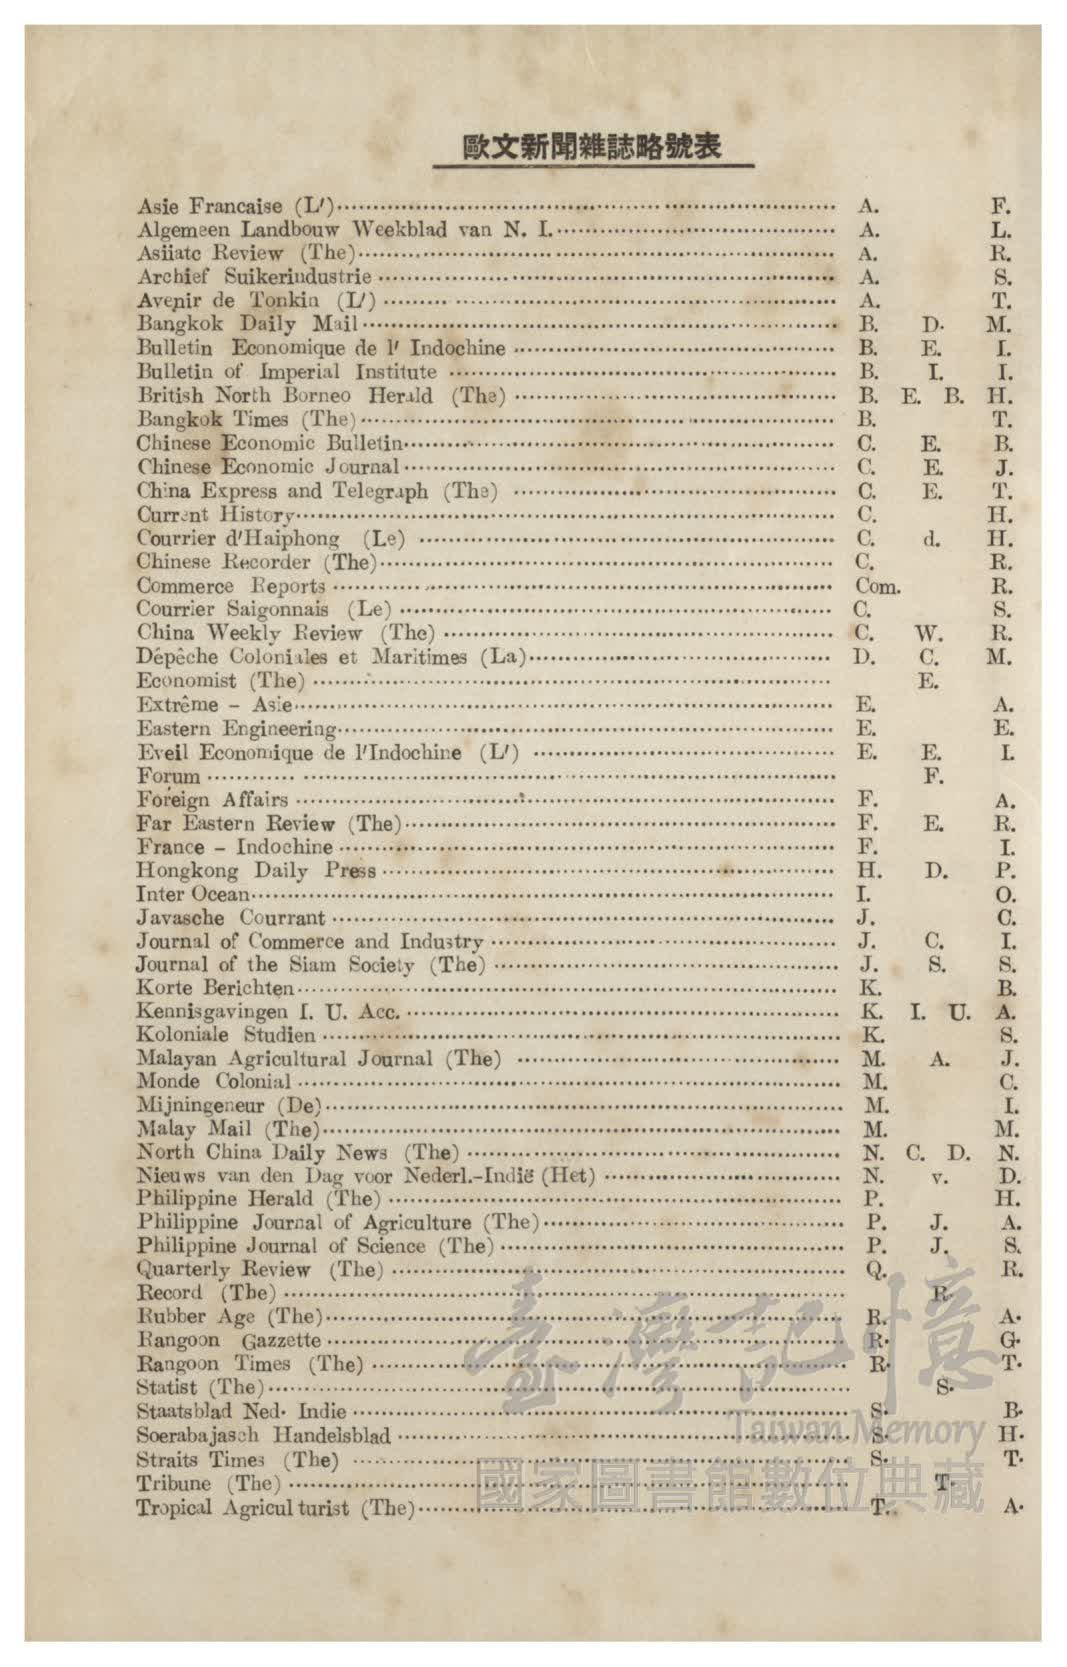 歐文新聞雜誌略號表
Asie Francaise (L')………… A. F.
Algemeen Landbouw Weekblad van N. I.………… A. L.
Asiiatc Review (The)………… A. R.
Archief Suikerindustrie ………… A. S.
Avenir de Tonkin (L') ………… A. T.
Bangkok Daily Mail ………… B. D. M.
Bulletin Economique de l' Indochine ………… B. E. I.
Bulletin of Imperial Institute ………… B. I. I.
British North Borneo Herald (The) ………… B. E. B. H.
Bangkok Times (The)………… B. T.
Chinese Economic Bulletin………… C. E. B.
Chinese Economic Journal ………… C. E. J.
China Express and Telegraph (The) ………… C. E. T.
Current History………… C. H.
Courrier d'Haiphong (Le) ………… C. d. H.
Chinese Recorder (The)………… C. R.
Commerce Reports ………… Com. R.
Courrier Saigonnais (Le) ………… C. S.
China Weekly Review (The) ………… C. W. R.
Dépêche Coloniales et Maritimes (La)………… D. C. M.
Economist (The) ………… E.
Extrême – Asie………… E. A.
Eastern Engineering………… E. E.
Eveil Economique de l'Indochine (L') ………… E. E. I.
Forum ………… F.
Foreign Affairs ………… F. A.
Far Eastern Review (The)………… F. E. R.
France – Indochine ………… F. I.
Hongkong Daily Press ………… H. D. P.
Inter Ocean………… I. O.
Javasche Courrant ………… J. C.
Journal of Commerce and Industry ………… J. C. I.
Journal of the Siam Society (The) ………… J. S. S.
Korte Berichten………… K. B.
Kennisgavingen I. U. Acc. ………… K. I. U. A.
Koloniale Studien ………… K. S.
Malayan Agricultural Journal (The) ………… M. A. J.
Monde Colonial ………… M. C.
Mijningeneur (De)………… M. I.
Malay Mail (The)………… M. M.
North China Daily News (The) ………… N. C. D. N.
Nieuws van den Dag voor Nederl.-Indië (Het) ………… N. v. D.
Philippine Herald (The) ………… P. H.
Philippine Journal of Agriculture (The)………… P. J. A.
Philippine Journal of Science (The) ………… P. J. S.
Quarterly Review (The) ………… Q. R.
Record (The) ………… R.
Rubber Age (The)………… R. A.
Rangoon Gazzette ………… R. G.
Rangoon Times (The) ………… R. T.
Statist (The)………… S.
Staatsblad Ned. Indie ………… S. B.
Soerabajasch Handelsblad ………… S. H.
Straits Times (The) ………… S. T.
Tribune (The) ………… T.
Tropical Agricul turist (The)………… T. A.
臺灣記憶
Taiwan Memory
國家圖書館數位典藏